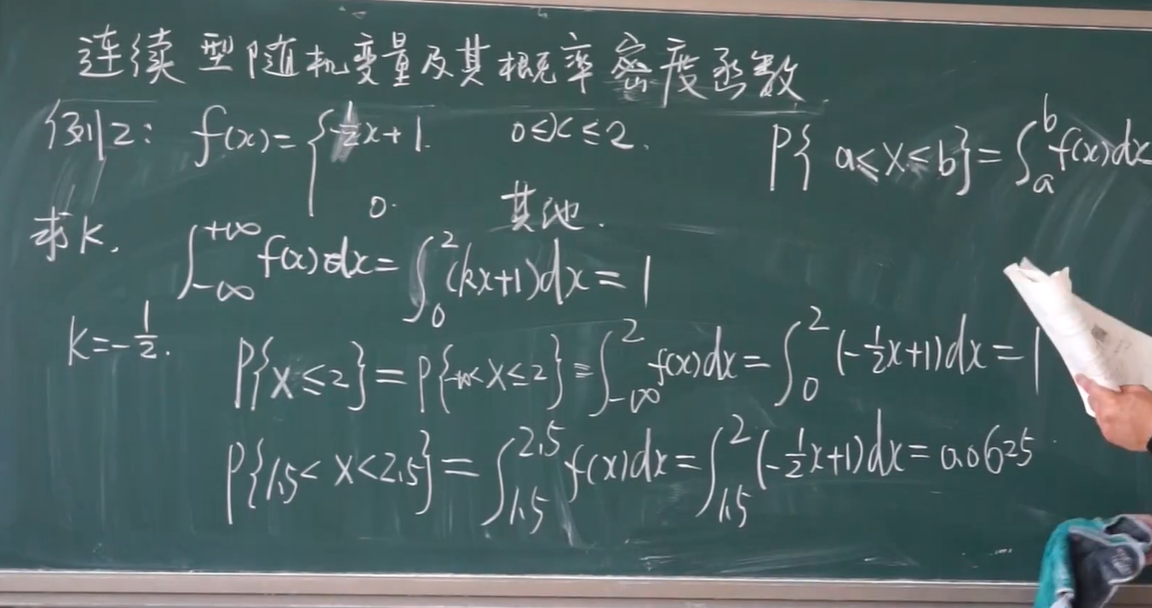 连续型随机变量及其概率密度函数
例2: f(x)={-1/2x+1. 0≤x≤2.
P{a≤X≤b}=∫_a^b f(x)dx
0. 其他.
求k. ∫_{-∞}^{+∞} f(x)dx=∫_0^2 (kx+1)dx=1
k=-1/2. P{X≤2}=P{-∞<X≤2}=∫_{-∞}^2 f(x)dx=∫_0^2 (-1/2x+1)dx=1
P{1.5<X<2.5}=∫_{1.5}^{2.5} f(x)dx=∫_{1.5}^2 (-1/2x+1)dx=0.0625